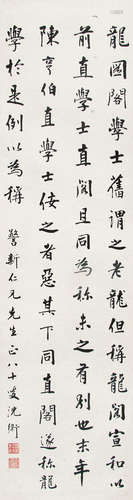 龍圖閣學士舊謂之老龍但稱龍閣宣和以
前直學士直閣且同為稱未之有別也末年
陳亨伯直學士佞之者惡其下同直閣遂稱龍
學於是例以為稱
警新仁兄先生正八十叟沈衛